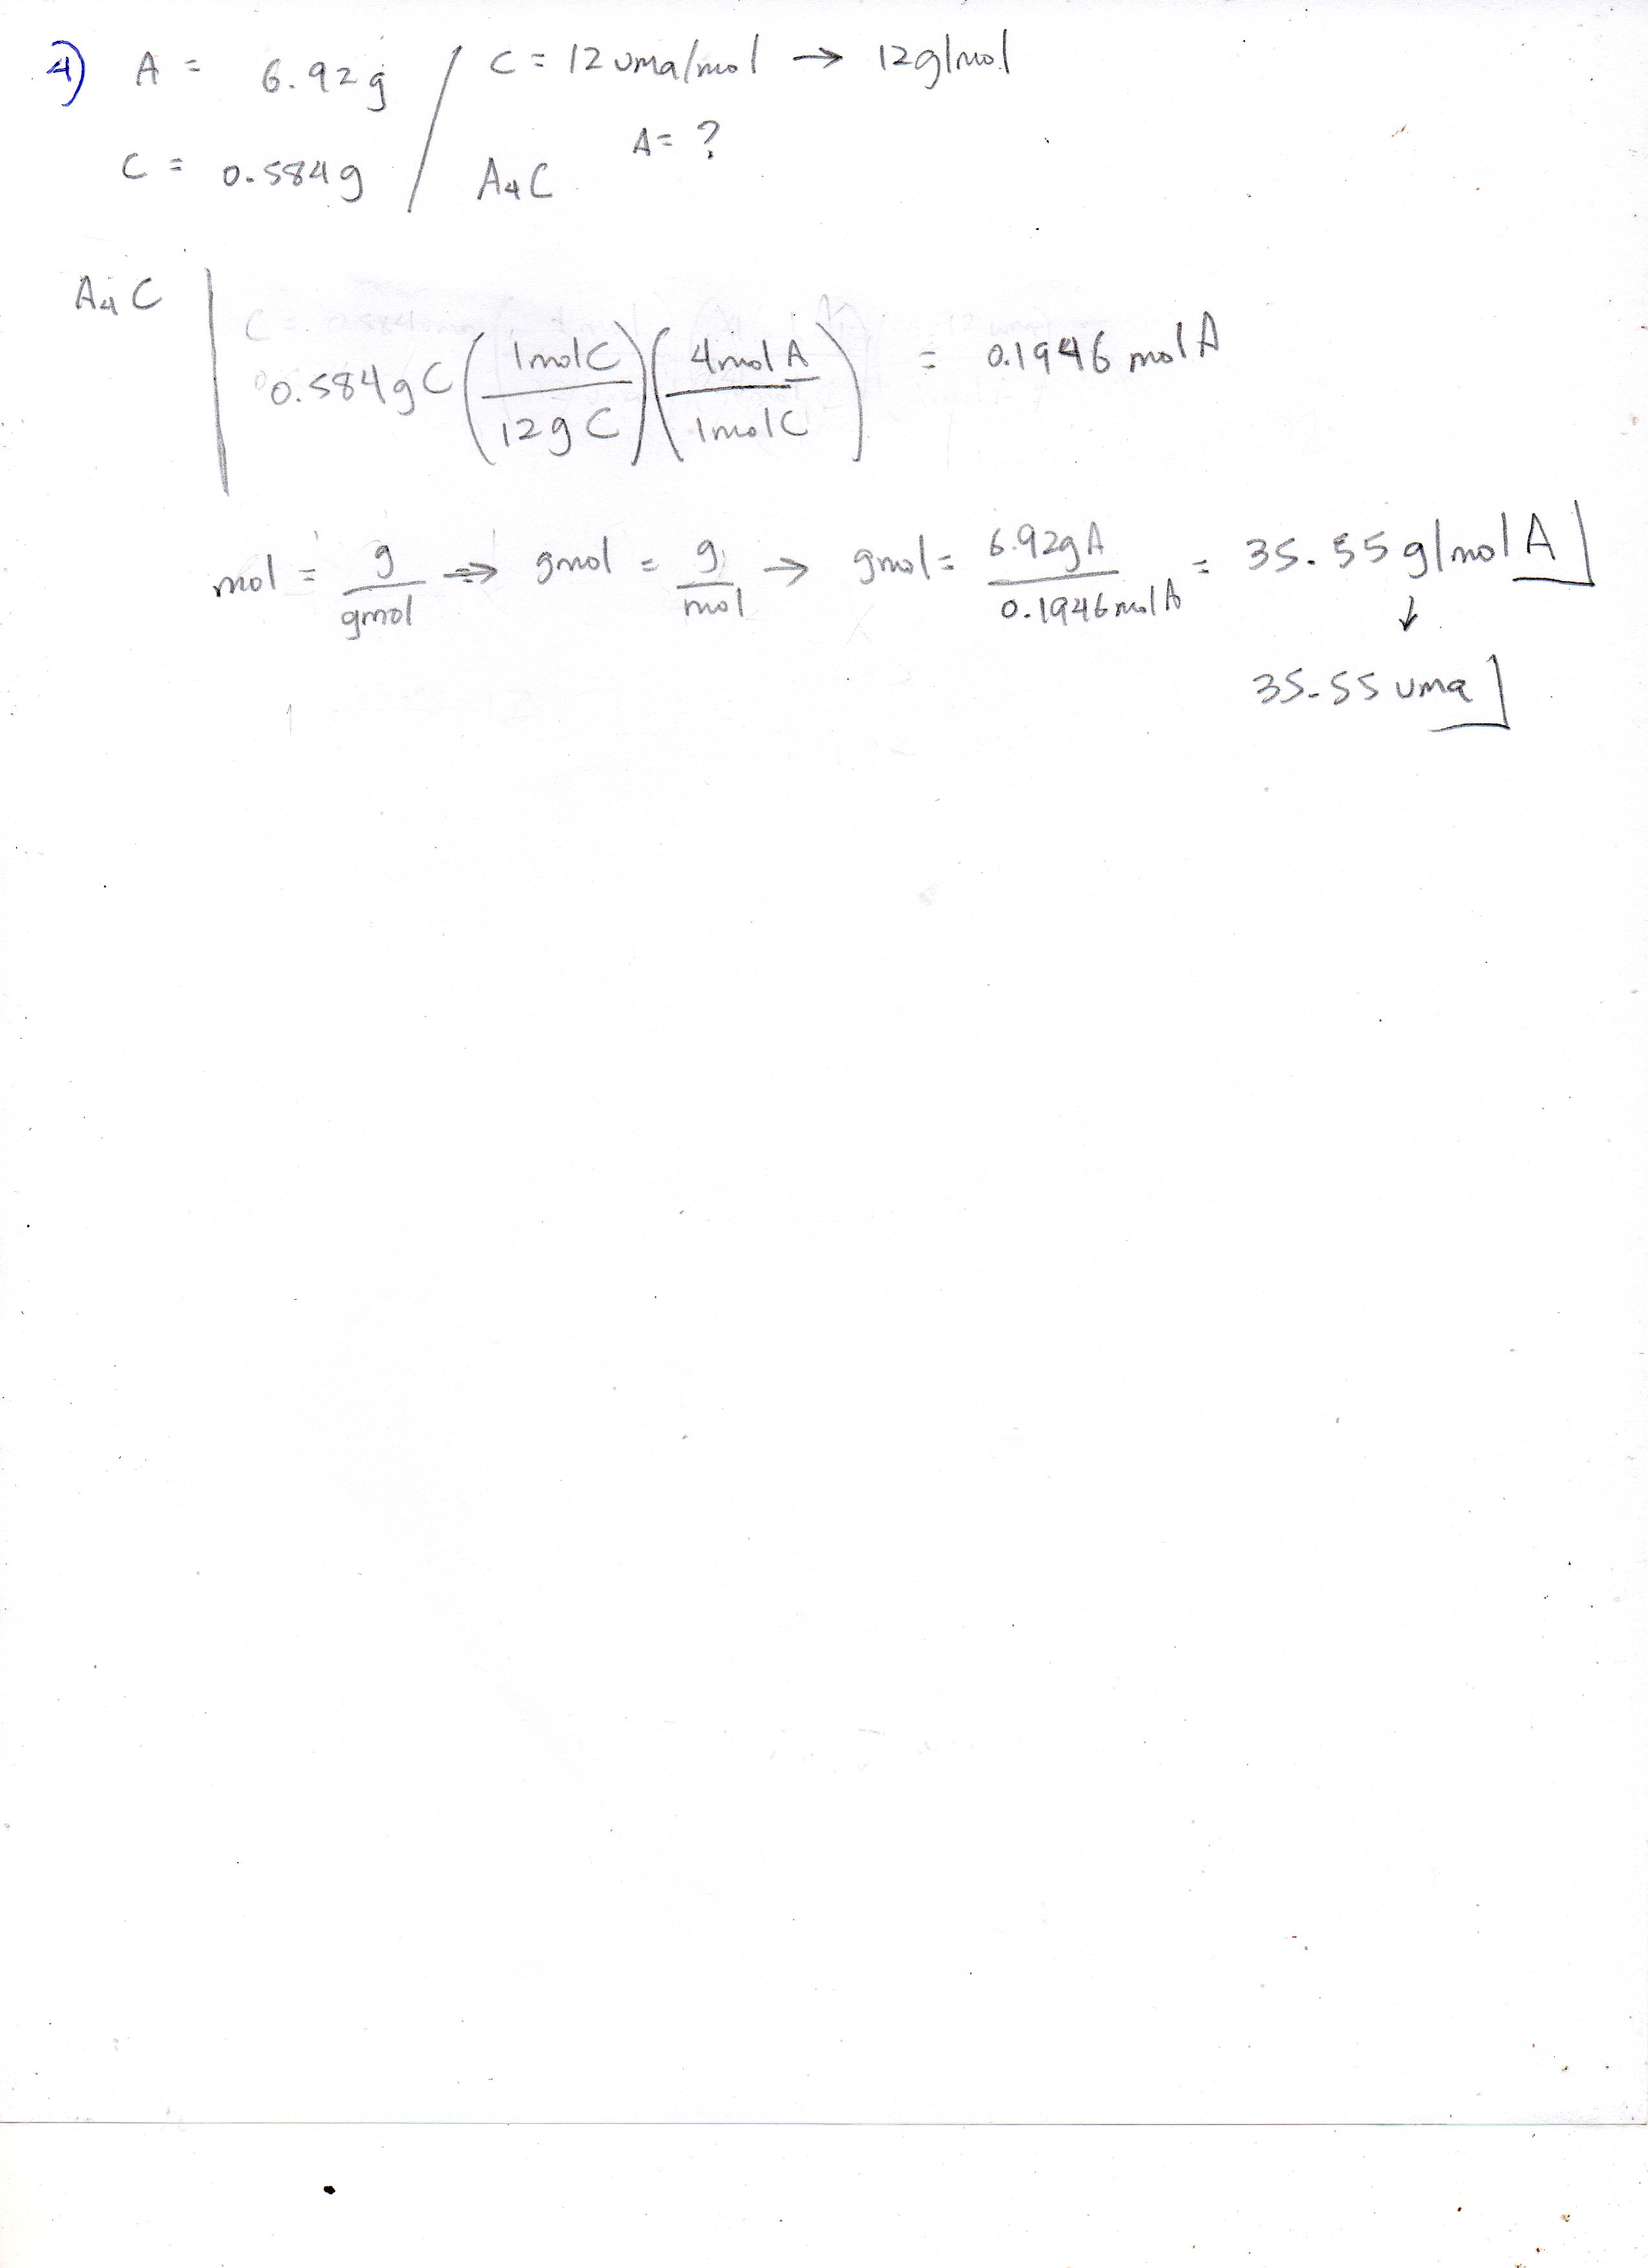 4) A = 6.92g / C = 12 uma/mol → 12g/mol
A = ?
C = 0.584g / A₄C
A₄C | 0.584g C (1molC / 12g C) (4mol A / 1molC) = 0.1946 mol A
mol = g / gmol → gmol = g / mol → gmol = 6.92g A / 0.1946 mol A = 35.55 g/mol A
↓
35.55 uma